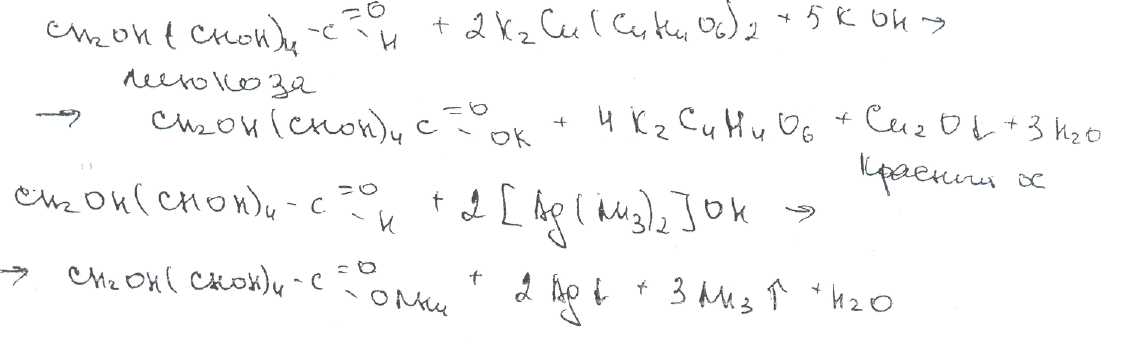 CH₂OH(CHOH)₄-C=O-H + 2K₂Cu(C₄H₄O₆)₂ + 5KOH →
глюкоза
→ CH₂OH(CHOH)₄C=O-OK + 4K₂C₄H₄O₆ + Cu₂O↓ + 3H₂O
Красный ос
CH₂OH(CHOH)₄-C=O-H + 2[Ag(NH₃)₂]OH →
→ CH₂OH(CHOH)₄-C=O-ONH₄ + 2Ag↓ + 3NH₃↑ + H₂O